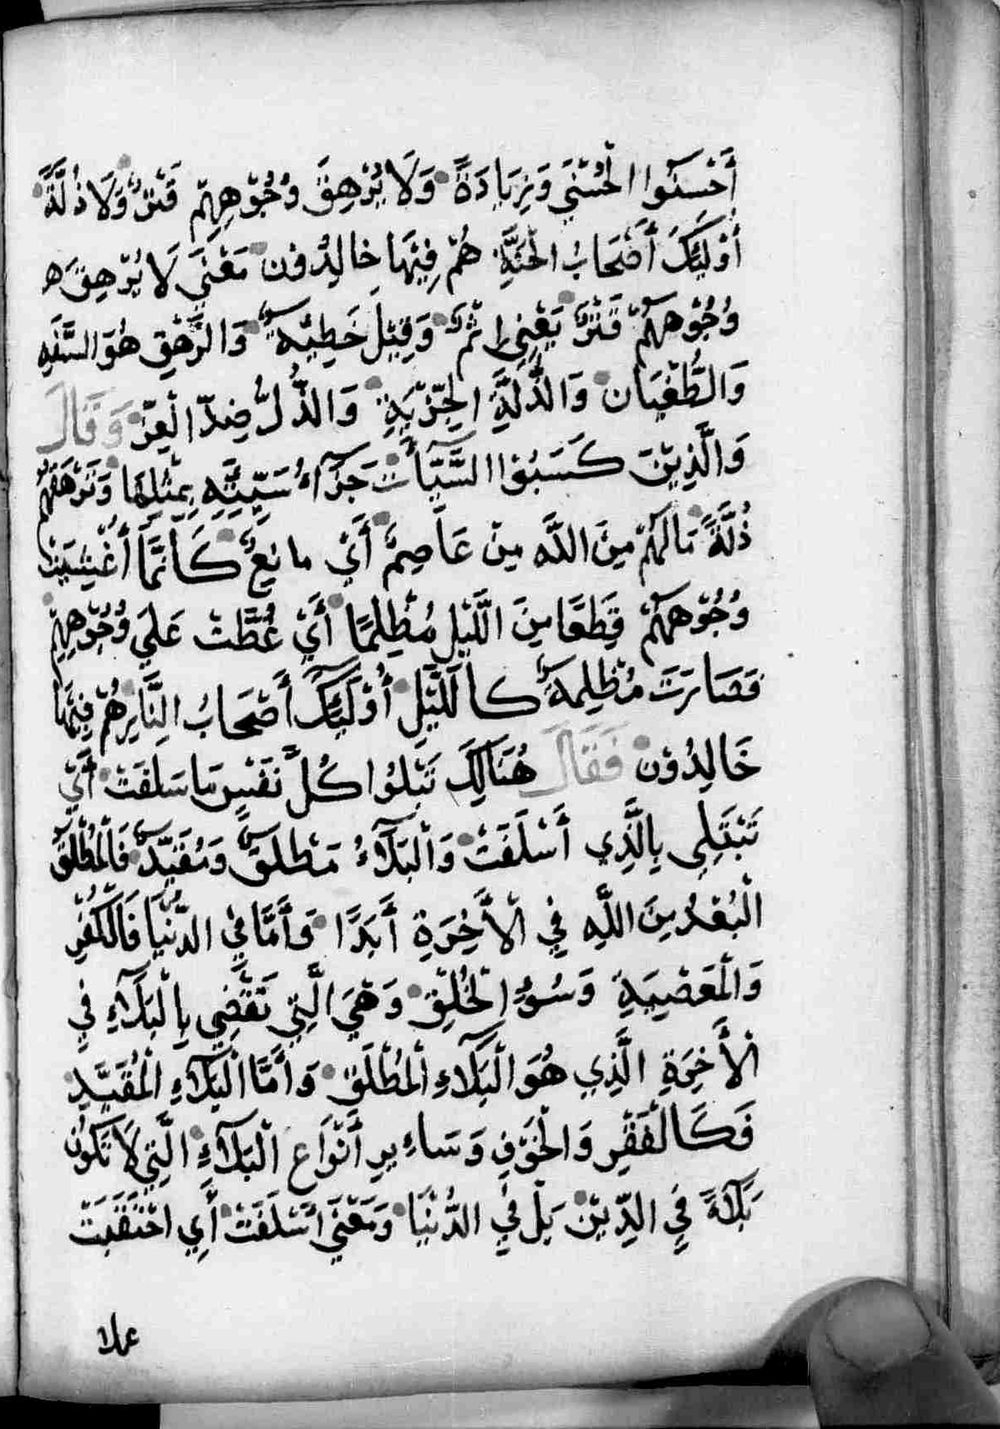 أَحْسَنُوا الْحُسْنَي وَزِيَادَةً وَلَا يُرْهِقَ وُجُوْهِهِمْ قَتَرٌ وَلَا ذُلَّةً
أُوْلَئِكَ أَصْحَابُ الْجَنَّةِ هُمْ فِيْهَا خَالِدُوْن مَعْنَي لَا يُرْهِقَ ه
وُجُوْهَهُمْ قَتَرٌ يَعْنِي اِثْمٌ وَقِيْلَ خَطِيْئَةٌ وَالرَّهْقِ هُوَ السَّفَهِ
وَالطُّغْيَان وَالذُّلَةِ الْجِزْيَةِ وَالذُّلُّ ضِدّ الْعِزّ وَقَالَ
وَالَّذِيْنَ كَسَبُوْا السَّيِّأَتْ جَزَآءُ سَيِّئَةٍ بِمْثْلِهَا وَتَرْهَقَهُمْ
ذُلَّةً مَالَهُمْ مِنَ اللَّهِ مِنْ عَاصِمٌ أَيْ مانِعٌ كَأَنَّمَا أُغْشِيَتْ
وُجُوْهَهُمْ قِطَعًا مِنَ الَّيْلِ مُظْلِمًا أَيْ غُطَّتْ عَلَي وُجُوْهِهِمْ
فَصَارَتْ مُظْلِمَةٌ كاللَّيْلِ أُوْلَئِكَ أَصْحَابُ النَّارِ هُمْ فِيْهَا
خَالِدُوْن فَقَالَ هُنَالِكَ تَبْلُوا كُلُّ نَفْسٍ مَا سَلَفَتْ أَيْ
تَبْتَلِي بِالَّذِي أَسْلَفَتْ وَالْبَلَآءُ مَطْلَقٌ وَمُقَيَّدٌ فَالْمُطْلَقُ
الْبُعْدُ مِنَ اللَّهِ فِي الْأَخِرَةِ أَبَدًا وَأَمَّا فِي الدُّنْيَا فَالْكُفْرِ
وَالْمَعْصِيَةِ وَسُوْءِ الْخُلْقِ وَهْيَ الَّتِي تَقْضِي بِالْبَلَآءِ فِي
الْأَخِرَةِ الَّذِي هُوَ الْبَلَاءِ الْمُطْلَقْ وَأَمَّا الْبَلَآءِ الْمُقَيَّدِ
فَكَالْفَقْرِ وَالْخَوْفِ وَسَاءِيرِ أَنْوَاعِ الْبَلَآءِ الَّتِي لَا تَكُوْن
بَلَآءً فِي الدِّيْنْ بَلْ فِي الدُّنْيَا وَمَعْنَي اَسْلَفَتْ أَي احْتَقَبَتْ
عملا